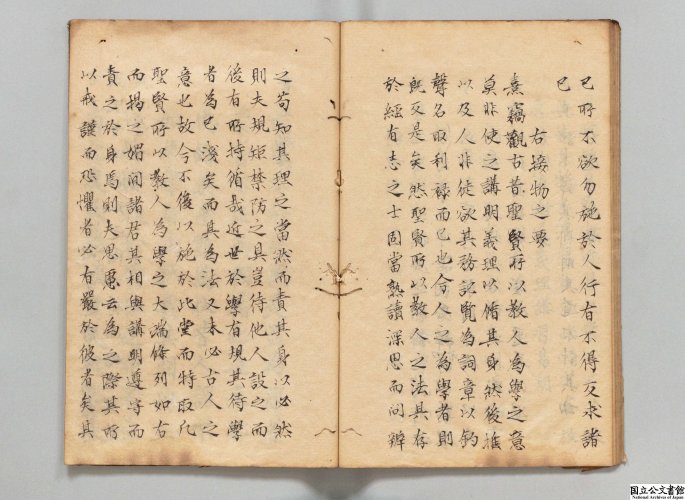 己所不欲勿施於人行有不得反求諸
己
右接物之要
熹竊觀古昔聖賢所以教人為學之意
莫非使之講明義理以脩其身然後推
以及人非徒欲其務記覽為詞章以釣
聲名取利祿而已也今人之為學者則
既反是矣然聖賢所以教人之法具存
於經有志之士固當熟讀深思而問辨
之苟知其理之當然而責其身以必然
則夫規矩禁防之具豈待他人設之而
後有所持循哉近世於學有規其待學
者為已淺矣而其為法又未必古人之
意也故今不復以施於此堂而特取凡
聖賢所以教人為學之大端條列如右
而揭之楣間諸君其相與講明遵守而
責之於身焉則夫思慮云為之際其所
以戒謹而恐懼者必有嚴於彼者矣其
国立公文書館
National Archives of Japan